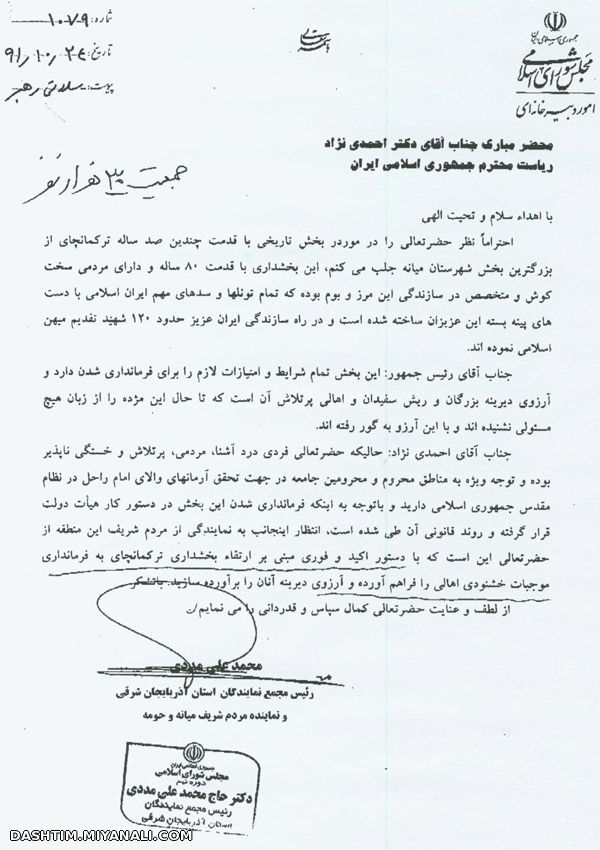 جمهوری اسلامی ایران
مجلس شورای اسلامی
امور دبیرخانه‌ای
شماره: ۱۰۷۹
تاریخ: ۹۱٫۱۰٫۲۴
پیوست:
محضر مبارک جناب آقای دکتر احمدی نژاد
ریاست محترم جمهوری اسلامی ایران
جمعیت ۳۰ هزار نفر
با اهداء سلام و تحیت الهی
احتراماً نظر حضرتعالی را در موردر بخش تاریخی با قدمت چندین صد ساله ترکمانچای از
بزرگترین بخش شهرستان میانه جلب می کنم، این بخشداری با قدمت ۸۰ ساله و دارای مردمی سخت
کوش و متخصص در سازندگی این مرز و بوم بوده که تمام تونلها و سدهای مهم ایران اسلامی با دست
های پینه بسته این عزیزان ساخته شده است و در راه سازندگی ایران عزیز حدود ۱۲۰ شهید تقدیم میهن
اسلامی نموده اند.
جناب آقای رئیس جمهور: این بخش تمام شرایط و امتیازات لازم را برای فرمانداری شدن دارد و
آرزوی دیرینه بزرگان و ریش سفیدان و اهالی پرتلاش آن است که تا حال این مژده را از زبان هیچ
مسئولی نشنیده اند و با این آرزو به گور رفته اند.
جناب آقای احمدی نژاد: حالیکه حضرتعالی فردی درد آشنا، مردمی، پرتلاش و خستگی ناپذیر
بوده و توجه ویژه به مناطق محروم و محرومین جامعه در جهت تحقق آرمانهای والای امام راحل در نظام
مقدس جمهوری اسلامی دارید و باتوجه به اینکه فرمانداری شدن این بخش در دستور کار هیأت دولت
قرار گرفته و روند قانونی آن طی شده است، انتظار اینجانب به نمایندگی از مردم شریف این منطقه از
حضرتعالی این است که با دستور اکید و فوری مبنی بر ارتقاء بخشداری ترکمانچای به فرمانداری
موجبات خشنودی اهالی را فراهم آورده و آرزوی دیرینه آنان را برآورده سازید. باتشکر
از لطف و عنایت حضرتعالی کمال سپاس و قدردانی را می نمایم
محمد علی مددی
رئیس مجمع نمایندگان استان آذربایجان شرقی
و نماینده مردم شریف میانه و حومه
جمهوری اسلامی ایران
مجلس شورای اسلامی
دوره نهم
دکتر حاج محمد علی مددی
رئیس مجمع نمایندگان
استان آذربایجان شرقی
DASHTIM.MIYANALI.COM